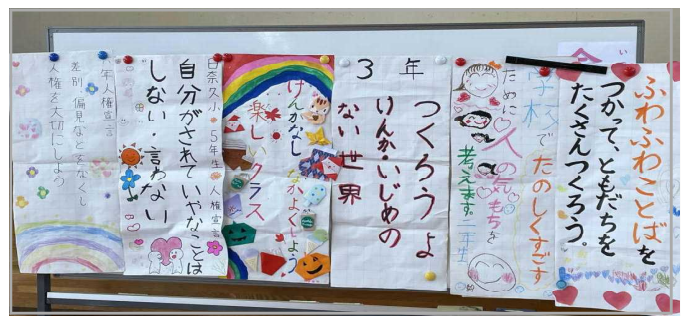 ふわふわことばを
つかって、ともだちを
たくさんつくろう。
学校でたのしくすごす
ために人の気もちを
考えます。二年生
3年
つくろうよ
けんか・いじめの
ない世界
けんかなし なかよくしよう
楽しいクラス
日奈久小 5年生 人権宣言
自分がされていやなことは
しない・言わない
年人権宣言
差別 偏見などをなくし
人権を大切にしよう